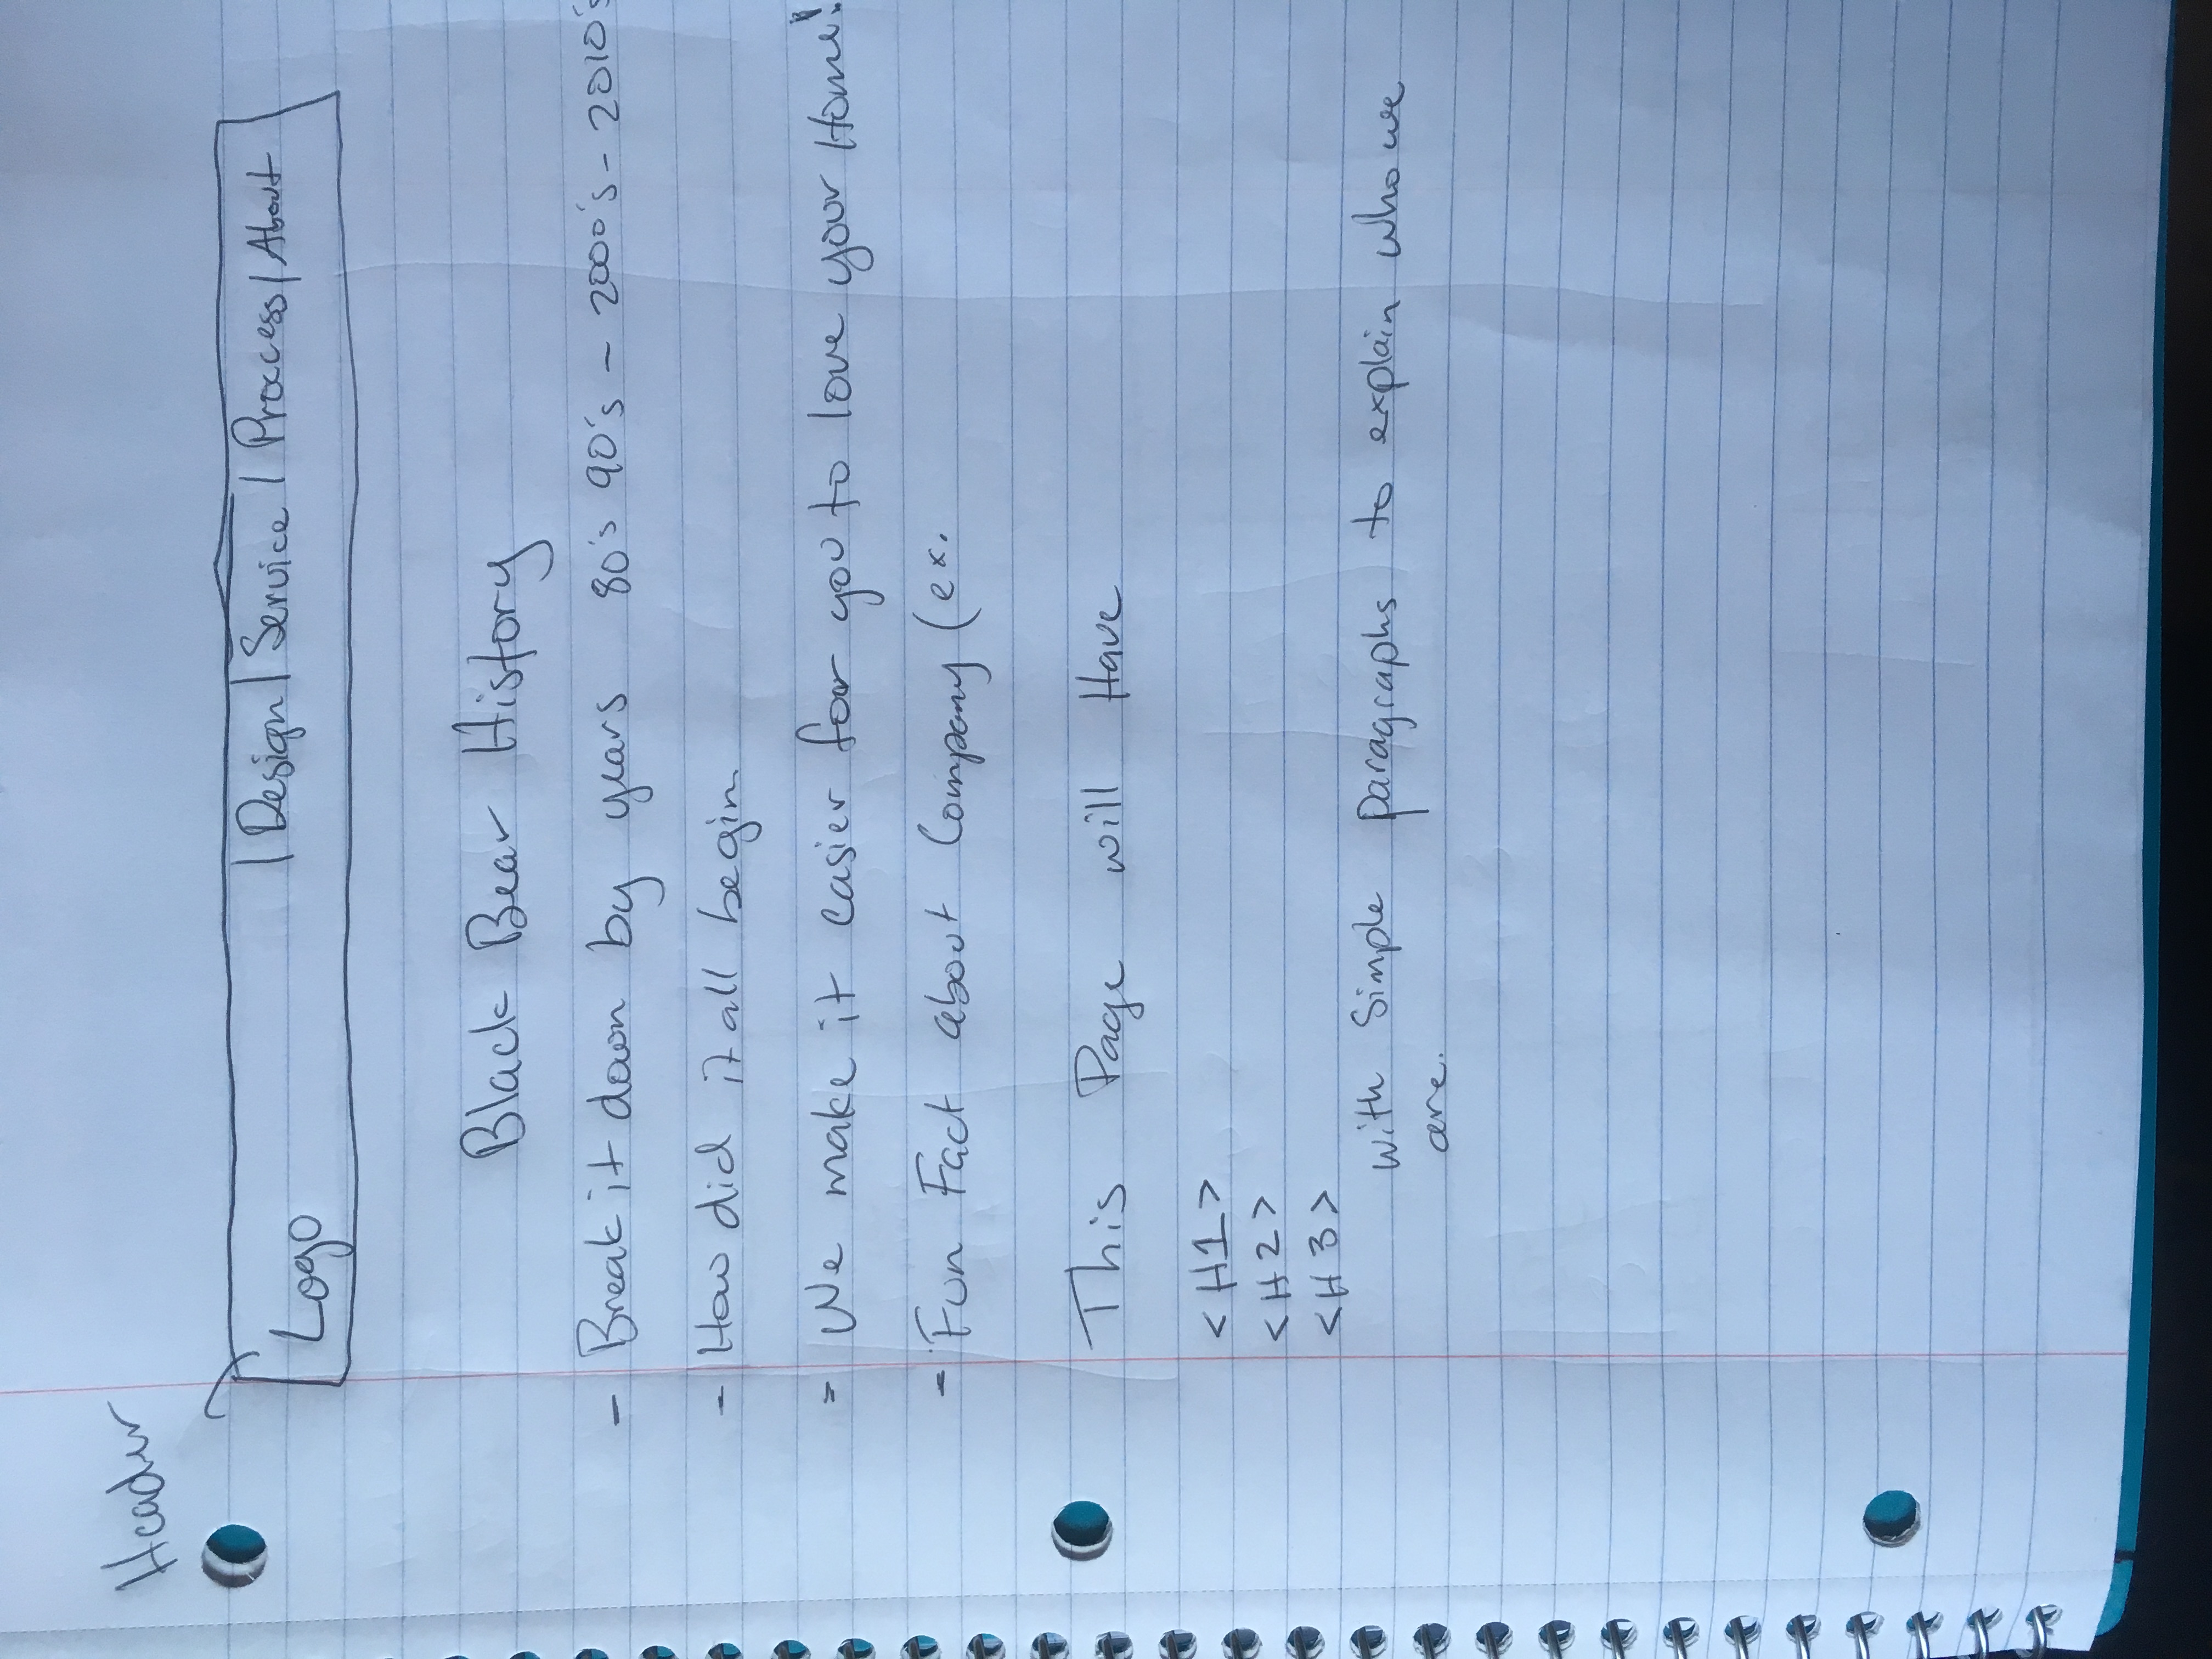 Header
Logo | Design | Service | Proccess | About
Black Bear History
- Break it down by years 80's 90's - 2000's - 2010's
- How did it all begin
- We make it easier for you to love your Home!
- Fun Fact about Company (ex.
This Page will Have
<H1>
<H2>
<H3>
with Simple paragraphs to explain who we
are.